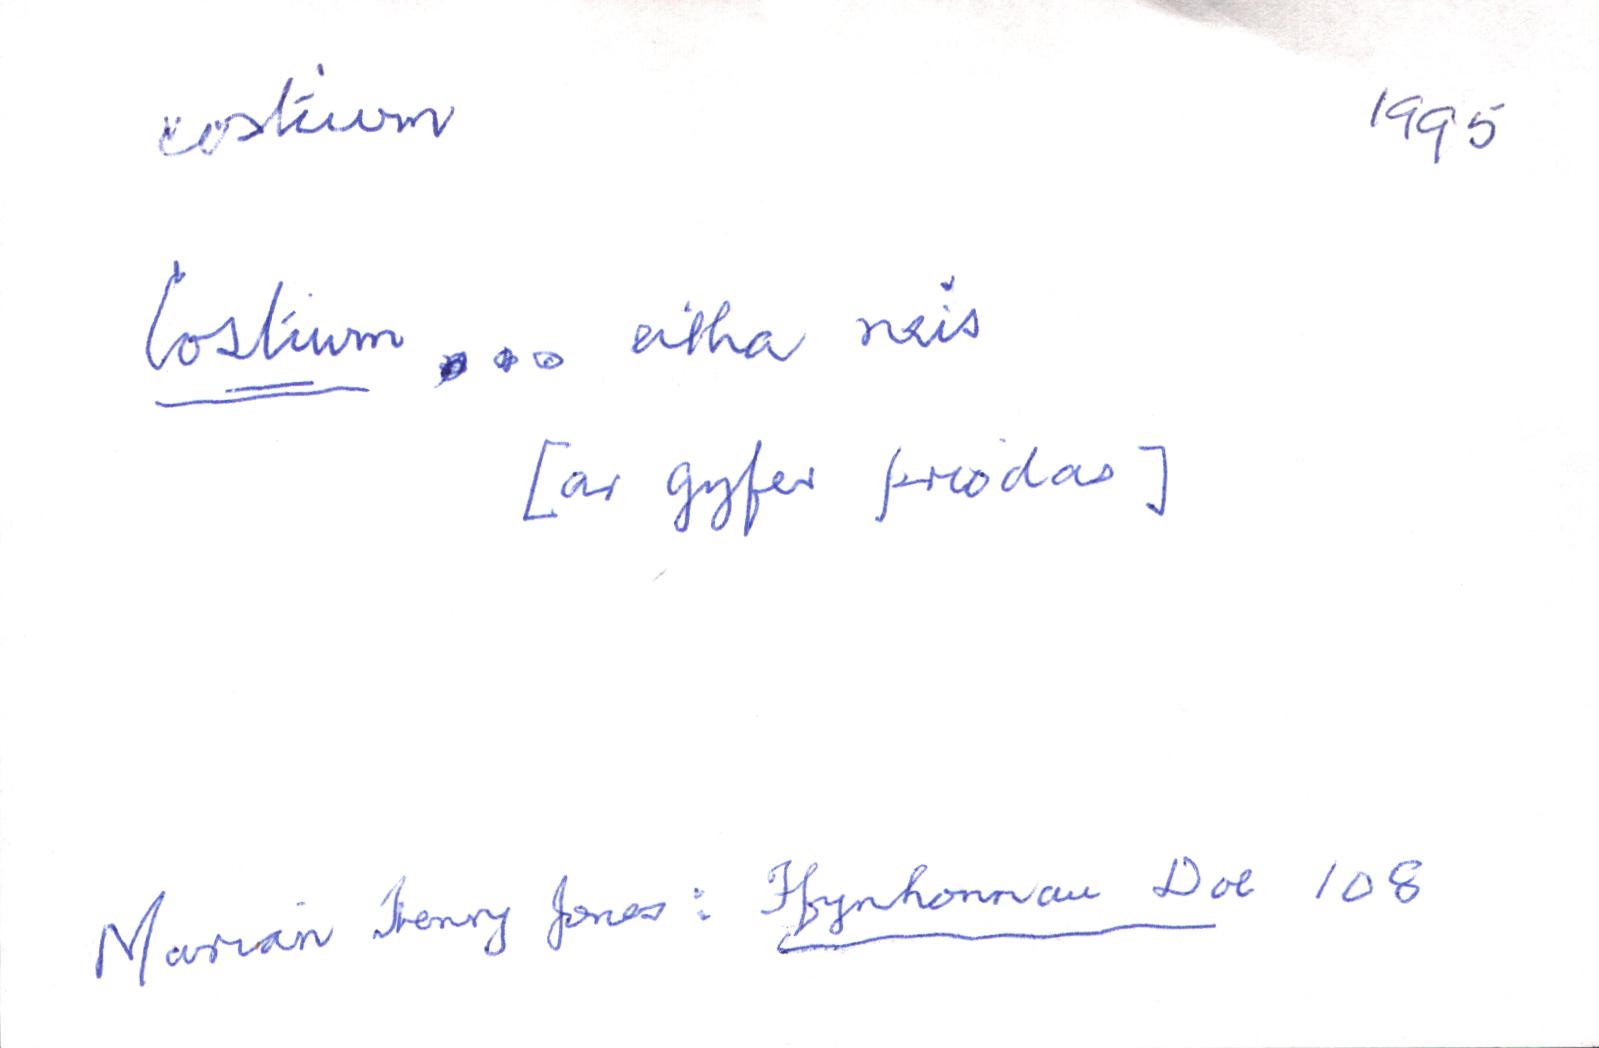 costium 1995
Costium ... eitha neis
[ar gyfer priodas]
Marian Henry Jones: Ffynhonnau Doe 108